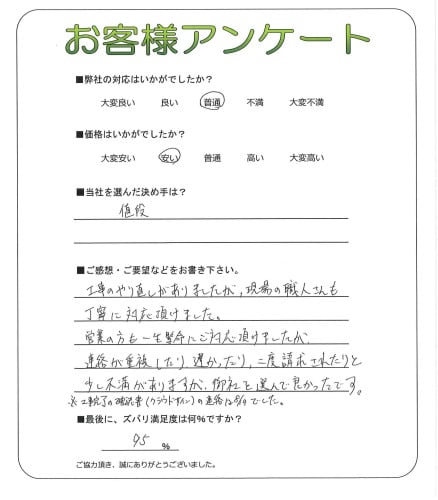 お客様アンケート
■弊社の対応はいかがでしたか？
大変良い　良い　普通　不満　大変不満
■価格はいかがでしたか？
大変安い　安い　普通　高い　大変高い
■当社を選んだ決め手は？
値段
■ご感想・ご要望などをお書き下さい。
工事のやり直しがありましたが、現場の職人さんも
丁寧に対応頂けました。
営業の方も一生懸命にご対応頂けましたが、
連絡が重複したり遅かったり、二度請求されたりと
少し不満がありますが、御社を選んで良かったです。
※工事完了の確認書(クラウドサイン)の連絡は でした。
■最後に、ズバリ満足度は何%ですか？
95 %
ご協力頂き、誠にありがとうございました。